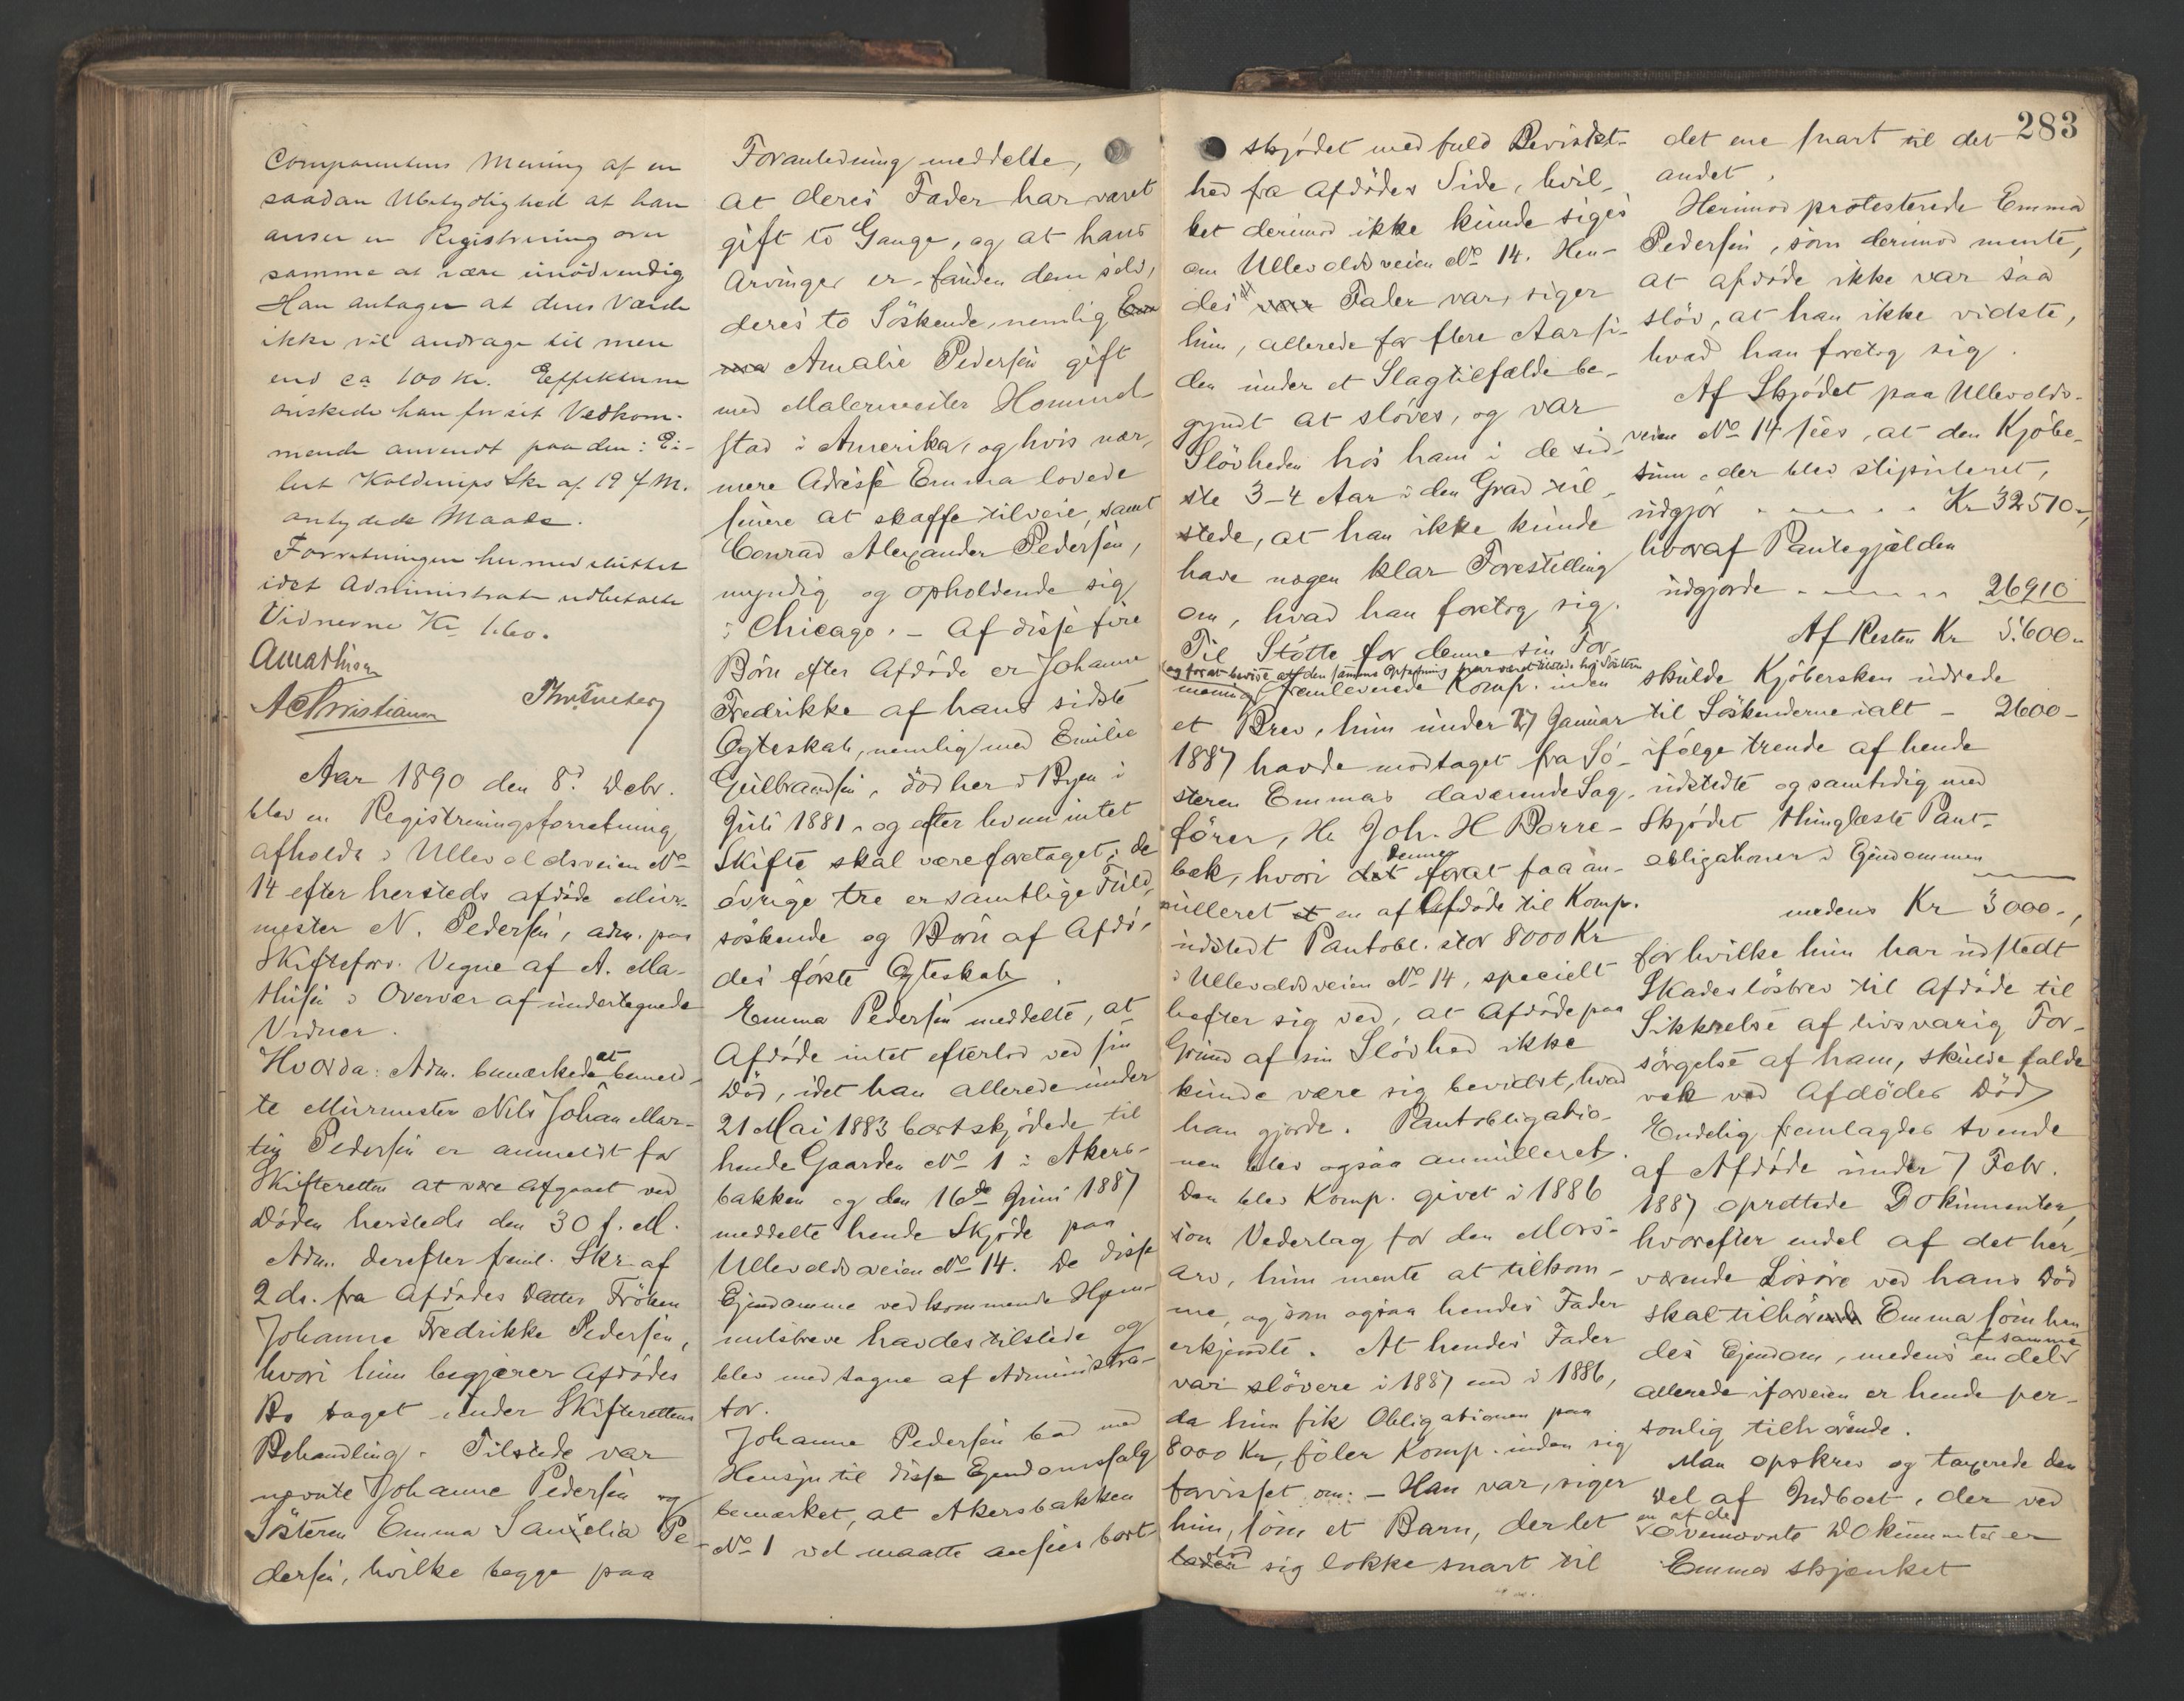 Comparentens Mening af en
saadan Ubetydelighed at han
anser en Registrering over
samme at være unödvendig
Han antager at deres Værdi
ikke vil andrage til mere
end ca 100 Kr. Effekterne
önskede han for sit Vedkom-
mende anvendt paa den i Ei-
lert Koldrups Skr af 19 f.M.
antydede Maade.
Forretningen hermed sluttet
idet Administrator udbetalte
Vidnerne Kr 1.60.
AMathisen
AChristiansen
Aar 1890 den 8d Debr.
blev en Registreringsforretning
afholdt i Ullevoldsveien No
14 efter hersteds afdöde Mur-
mester N. Pedersen, adm. paa
Skifteforv. Vegne af A. Ma-
thisen i Overvær af undertegnede
Vidner.
Hvorda: Adm. bemærkede at bemeld-
te Murmester Nils Johan Mar-
tin Pedersen er anmeldt for
Skifteretten at være afgaaet ved
Döden hersteds den 30 f. M.
Adm. derefter freml. Skr af
2 ds. fra Afdödes Datter Fröken
Johanne Fredrikke Pedersen,
hvori hun begjærer Afdödes
Bo taget under Skifterettens
Behandling. Tilstede var
nævnte Johanne Pedersen og
Söstern Emma Pe-
dersen, hvilke begge paa
Foranledning meddelte,
at deres Fader har været
gift to Gange, og at hans
Arvinger er, foruden dem selv,
deres to Söskende, nemlig Em
ma Amalie Pedersen gift
med Malermester Hommel
stad i Amerika, og hvis nær-
mere Adresse Emma lovede
senere at skaffe tilveie, samt
Conrad Alexander Pedersen,
myndig og opholdende sig
i Chicago. – Af disse fire
Börn efter Afdöde er Johanne
Fredrikke af hans sidste
Ægteskab, nemlig med Emilie
Gulbrandsen, död her i Byen i
Juli 1881, og efter hvem intet
Skifte skal være foretaget; de
övrige tre er samtlige Fuld-
söskende og Börn af Afdö-
des förste Ægteskab.
Emma Pedersen meddelte, at
Afdöde intet efterlod ved sin
Död, idet han allerede under
21 Mai 1883 bortskjödede til
hende Gaarden No 1 i Akers-
bakken og den 16de Juni 1887
meddelte hende Skjöde paa
Ullevoldsveien No 14. De disse
Ejendomme vedkommende Hjem-
melsbreve havdes tilstede og
blev medtagne af Administra-
tor.
Johanne Pedersen bad med
Hensyn til disse Ejendomssalg
bemærket, at Akersbakken
No 1 vel maatte ansees bort-
skjödet med fuld Bevidst-
hed fra Afdödes Side, hvil-
ket derimod ikke kunde siges
om Ullevoldsveien No 14. Hen-
des Fader var, siger
hun, allerede for flere Aar si-
den under et Slagtilfælde be-
gyndt at slöves, og var
Slövheden hos ham i de sid-
ste 3–4 Aar i den Grad til
stede, at han ikke kunde
have nogen klar Forestilling
om, hvad han foretog sig.
Til Stötte for denne sin For-
og forat bevise at den samme Opfatning har været tilstede hos Söstern
mening fremleverede Komp. inden
et Brev, hun under 27 Januar
1887 havde modtaget fra Sö-
steren Emmas daværende Sag-
förer, Hr Joh. H Borre-
bæk, hvori det denne forat faa an-
nulleret et en af Afdöde til Komp.
udstedt Pantobl. stor 8000 Kr
i Ullevoldsveien No 14, specielt
hefter sig ved, at Afdöde paa
Grund af sin Slövhed ikke
kunde være sig bevidst, hvad
han gjorde. Pantobligatio-
nen blev ogsaa annulleret.
Den blev Komp. givet i 1886
som Vederlag for den Mors-
arv, hun mente at tilkom-
me, og som ogsaa hendes Fader
erkjendte. At hendes Fader
var slövere i 1887 end i 1886,
da hun fik Obligationen paa
8000 Kr, föler Komp. inden sig
forvisset om. – Han var, siger
hun, som et Barn, der let
lader lod sig lokke snart til
283
det ene snart til det
andet.
Herimod protesterede Emma
Pedersen, som derimod mente,
at afdöde ikke var saa
slöv, at han ikke vidste,
hvad han foretog sig.
Af Skjödet paa Ullevolds-
veien No 14 sees, at den Kjöbe-
sum, der blev stipuleret,
udgjör . . . . . Kr 32510–,
hvoraf Pantegjælden
udgjorde . . . . . 26910
Af Resten Kr 5.600–
skulde Kjöbersken udrede
til Söskenderne ialt – 2600–
ifölge trende af hende
udstedte og samtidig med
Skjödet thinglæste Pant-
obligationer i Ejendommen
medens Kr 3000–,
for hvilke hun har udstedt
Skadeslösbrev til Afdöde til
Sikkrelse af livsvarig For-
sörgelse af ham, skulde falde
væk ved Afdödes Död.
Endelig fremlagdes tvende
af Afdöde under 7 Febr.
1887 oprettede Dokumenter,
hvorefter endel af det her-
værende Lösöre ved hans Död
skal tilhörende Emma som hen
des Ejendom, medens en del af samme
allerede iforveien er hende per-
sonlig tilhörende.
Man opskrev og taxerede den
Del af Indboet, der ved
en af de
ovennævnte Dokumenter er
Emma skjænket